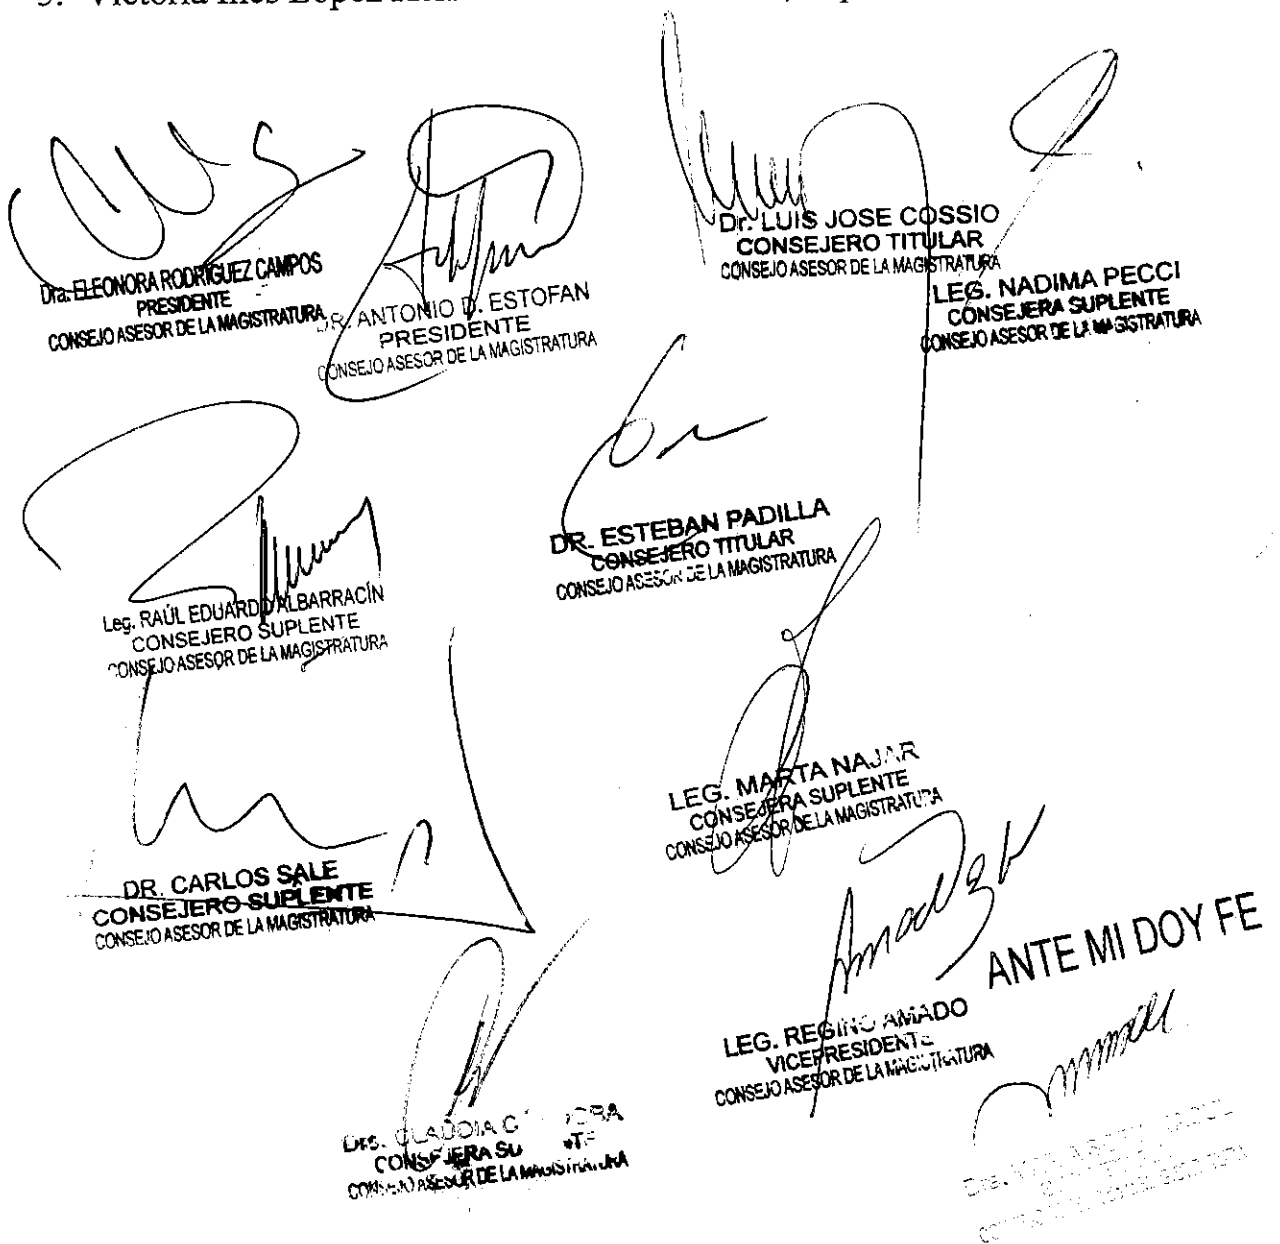 Victoria Inés López
Dra. ELEONORA RODRIGUEZ CAMPOS
PRESIDENTE
CONSEJO ASESOR DE LA MAGISTRATURA
DR. ANTONIO D. ESTOFAN
PRESIDENTE
CONSEJO ASESOR DE LA MAGISTRATURA
Dr. LUIS JOSE COSSIO
CONSEJERO TITULAR
CONSEJO ASESOR DE LA MAGISTRATURA
LEG. NADIMA PECCI
CONSEJERA SUPLENTE
CONSEJO ASESOR DE LA MAGISTRATURA
Leg. RAÚL EDUARDO ALBARRACÍN
CONSEJERO SUPLENTE
CONSEJO ASESOR DE LA MAGISTRATURA
DR. ESTEBAN PADILLA
CONSEJERO TITULAR
CONSEJO ASESOR DE LA MAGISTRATURA
LEG. MARTA NAJAR
CONSEJERA SUPLENTE
CONSEJO ASESOR DE LA MAGISTRATURA
DR. CARLOS SALE
CONSEJERO SUPLENTE
CONSEJO ASESOR DE LA MAGISTRATURA
Amado
ANTE MI DOY FE
LEG. REGINO AMADO
VICEPRESIDENTE
CONSEJO ASESOR DE LA MAGISTRATURA
CLAUDIA
CONSEJERA
CONSEJO ASESOR DE LA MAGISTRATURA